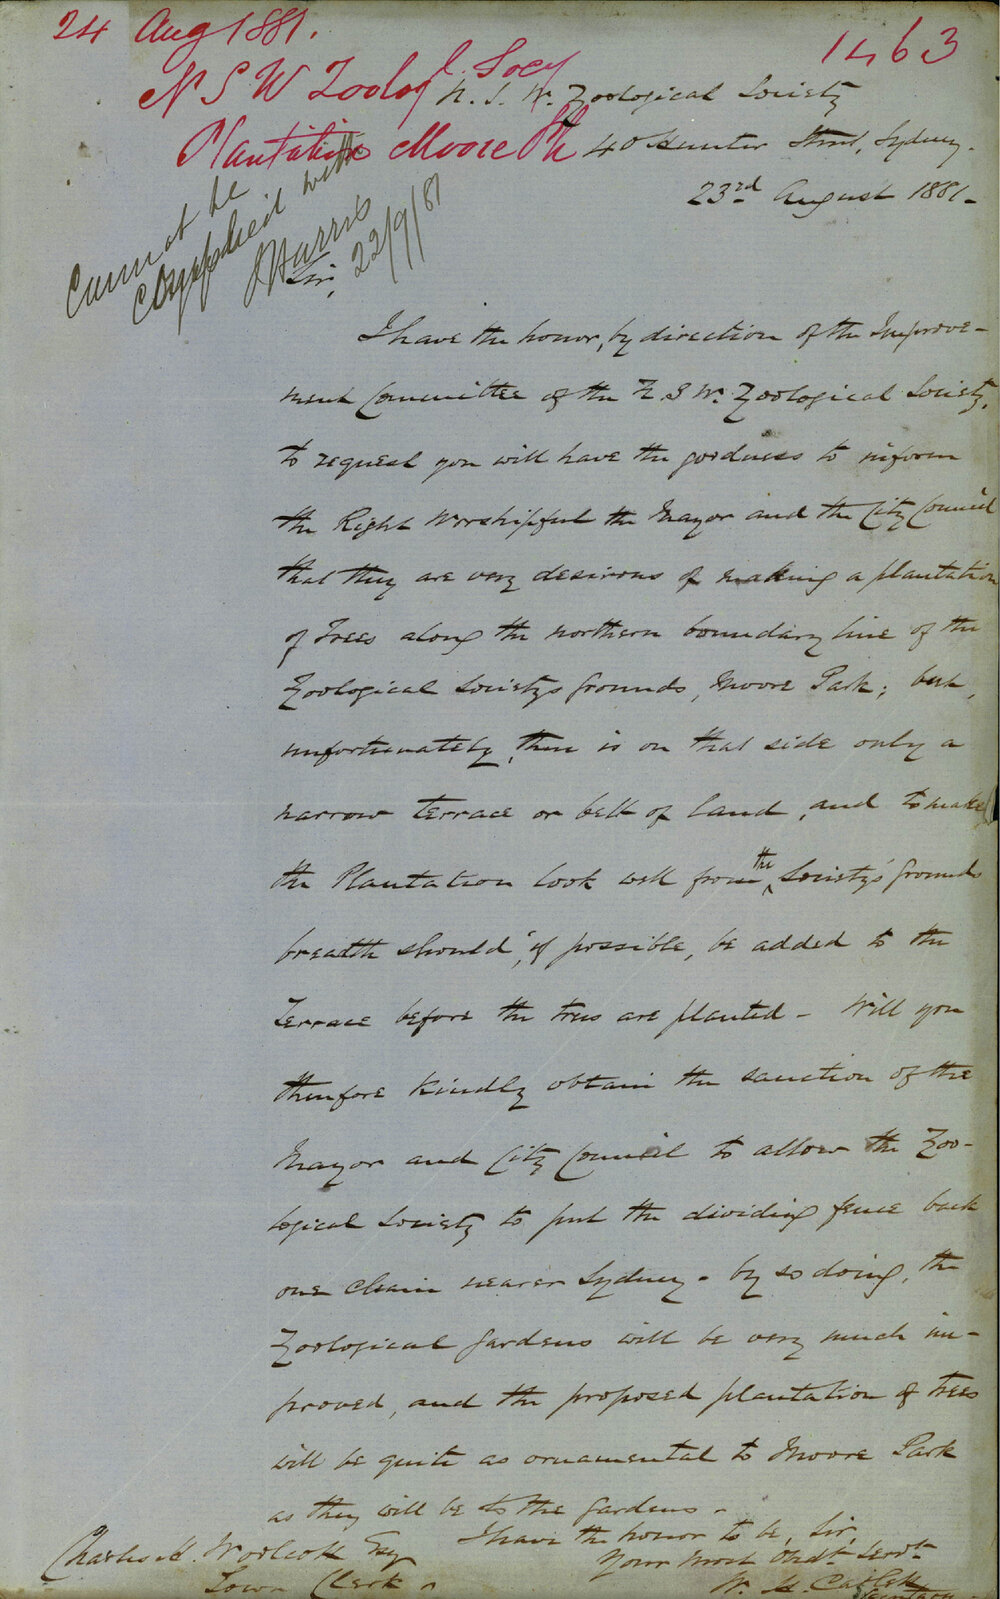 24 Aug 1881.
1463
N S W Zoolog l. Socy
Plantation Moore Pk
N. S. W. Zoological Society
40 Hunter Street, Sydney.
23rd August 1881.
Cannot be
complied with
J Harris
22/9/81
Sir,
I have the honor, by direction of the Improve-
ment Committee of the N. S W. Zoological Society,
to request you will have the goodness to inform
the Right Worshipful the Mayor and the City Council
that they are very desirous of making a plantation
of Trees along the northern boundary line of the
Zoological Society's Grounds, Moore Park; but,
unfortunately, there is on that side only a
narrow terrace or belt of land, and to make
the Plantation look well from the Society's Grounds
breadth should, if possible, be added to the
Terrace before the trees are planted – Will you
therefore kindly obtain the sanction of the
Mayor and City Council to allow the Zoo-
logical Society to put the dividing fence back
one chain nearer Sydney - by so doing, the
Zoological Gardens will be very much im-
proved, and the proposed plantation of trees
will be quite as ornamental to Moore Park
as they will be to the Gardens -
I have the honor to be, Sir,
Your most Obdt. Servt.
W. H. Catlett
Secretary
Charles H. Woolcott Esq
Town Clerk